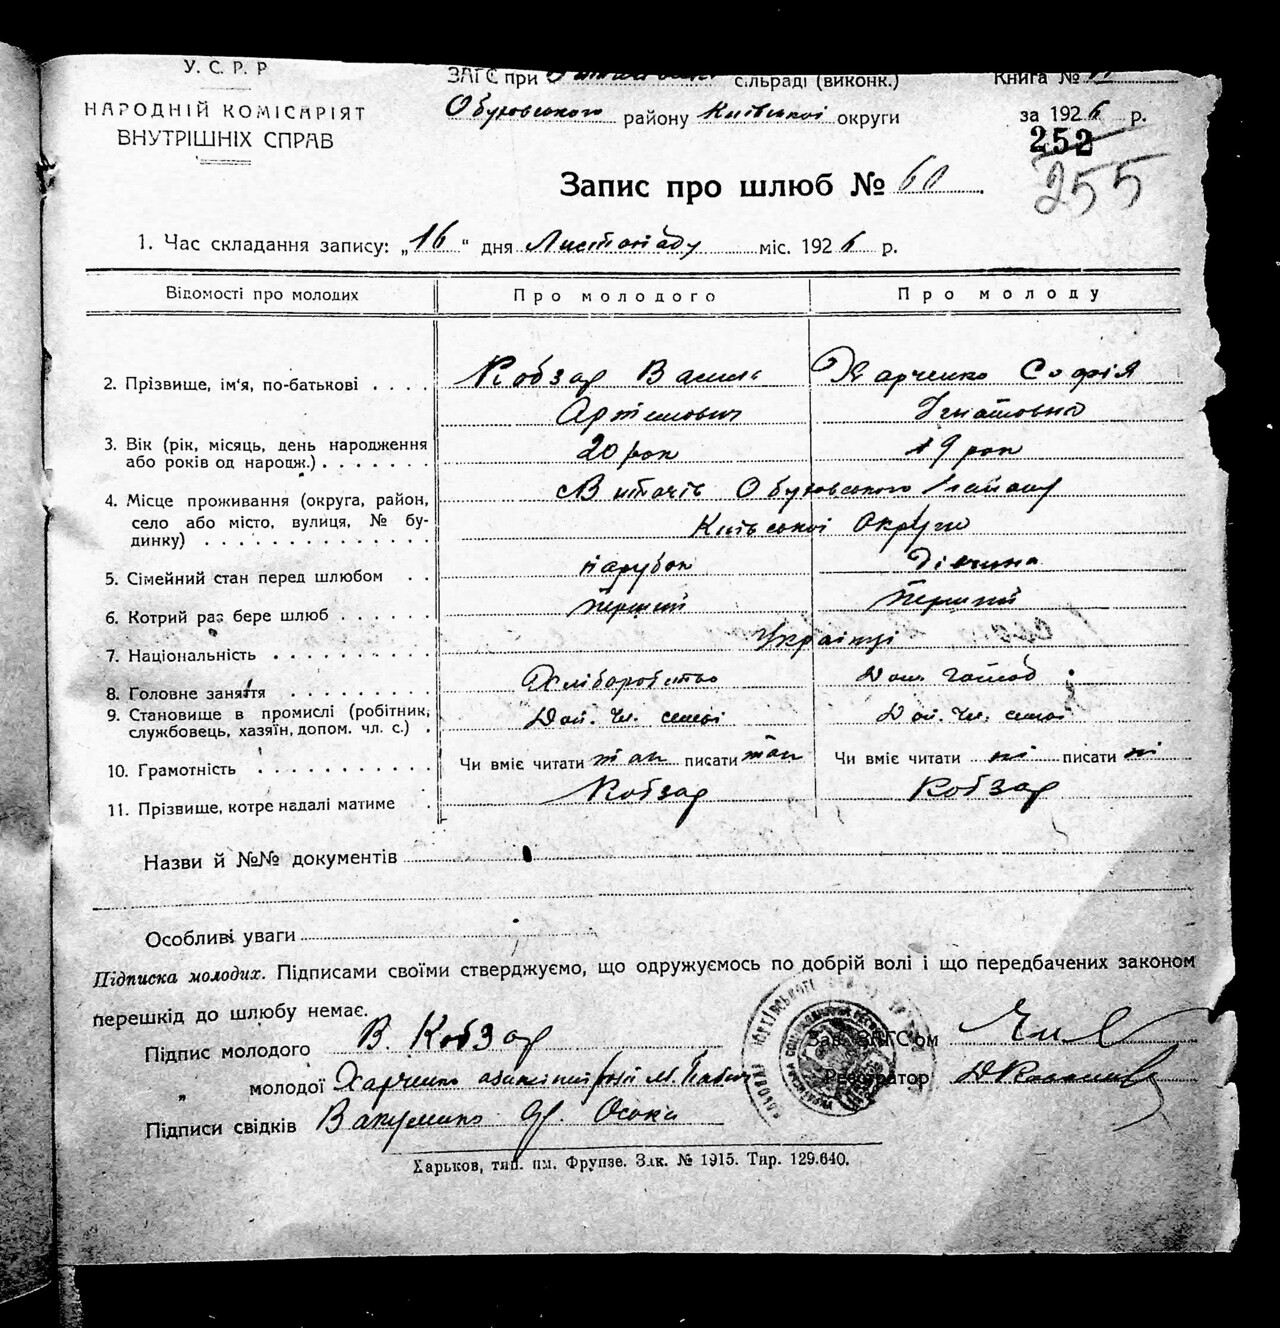 У. С. Р. Р
НАРОДНІЙ КОМІСАРІЯТ
ВНУТРІШНІХ СПРАВ
ЗАГС при сільраді (виконк.)
Обуховського району Київської округи
Книга №
за 1926 р.
252
255
Запис про шлюб № 60
1. Час складання запису: „16“ дня Листопаду міс. 1926 р.
Відомості про молодих Про молодого Про молоду
2. Прізвище, ім'я, по-батькові . . . . Кобзар Василь Харченко Софія
Артемович Ігнатовна
3. Вік (рік, місяць, день народження
або років од народж.) . . . . . . . 20 рок 19 рок
4. Місце проживання (округа, район,
село або місто, вулиця, № бу-
динку) . . . . . . . . . . . . . Витачів Обуховського району
Київської Округи
5. Сімейний стан перед шлюбом . . парубок дівчина
6. Котрий раз бере шлюб . . . . . . перший перший
7. Національність . . . . . . . . . . Українці
8. Головне заняття . . . . . . . . . Хліборобство Дом. господ.
9. Становище в промислі (робітник,
службовець, хазяїн, допом. чл. с.) . Доп. чл. семьї Доп. чл. семьї
10. Грамотність . . . . . . . . . . . Чи вміє читати так писати так Чи вміє читати ні писати ні
11. Прізвище, котре надалі матиме . Кобзар Кобзар
Назви й №№ документів
Особливі уваги
Підписка молодих. Підписами своїми стверджуємо, що одружуємось по добрій волі і що передбачених законом
перешкід до шлюбу немає.
Підпис молодого В. Кобзар Зав. ЗАГС'ом
„ молодої Харченко Реєстратор
Підписи свідків Вакуленко Осока
Харьков, тип. им. Фрунзе. Зак. № 1915. Тир. 129.640.